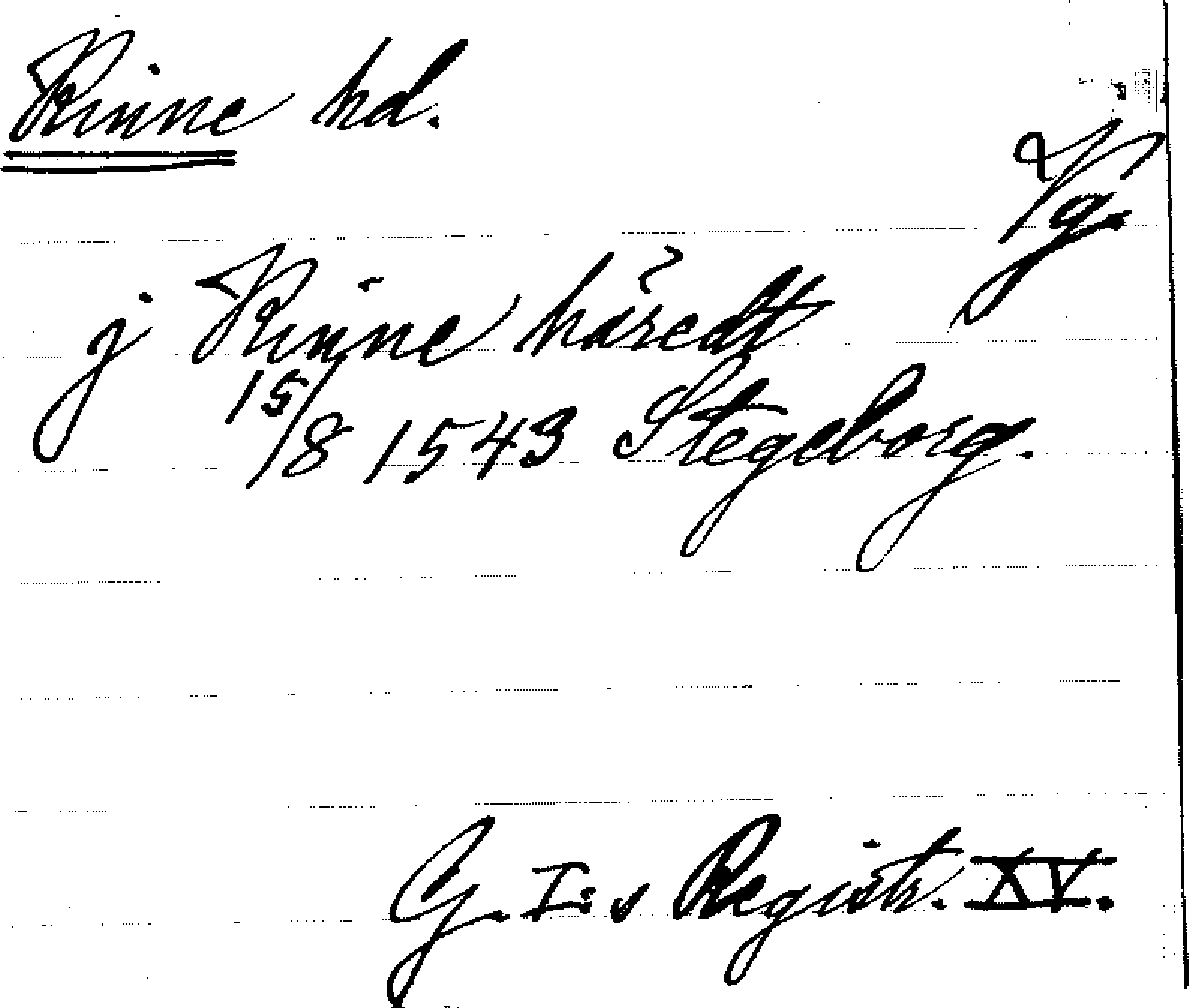 Kinne hd.
Vg.
j Kinne håredt
15/8 1543 Stegeborg.
G. I:s Registr. XV.